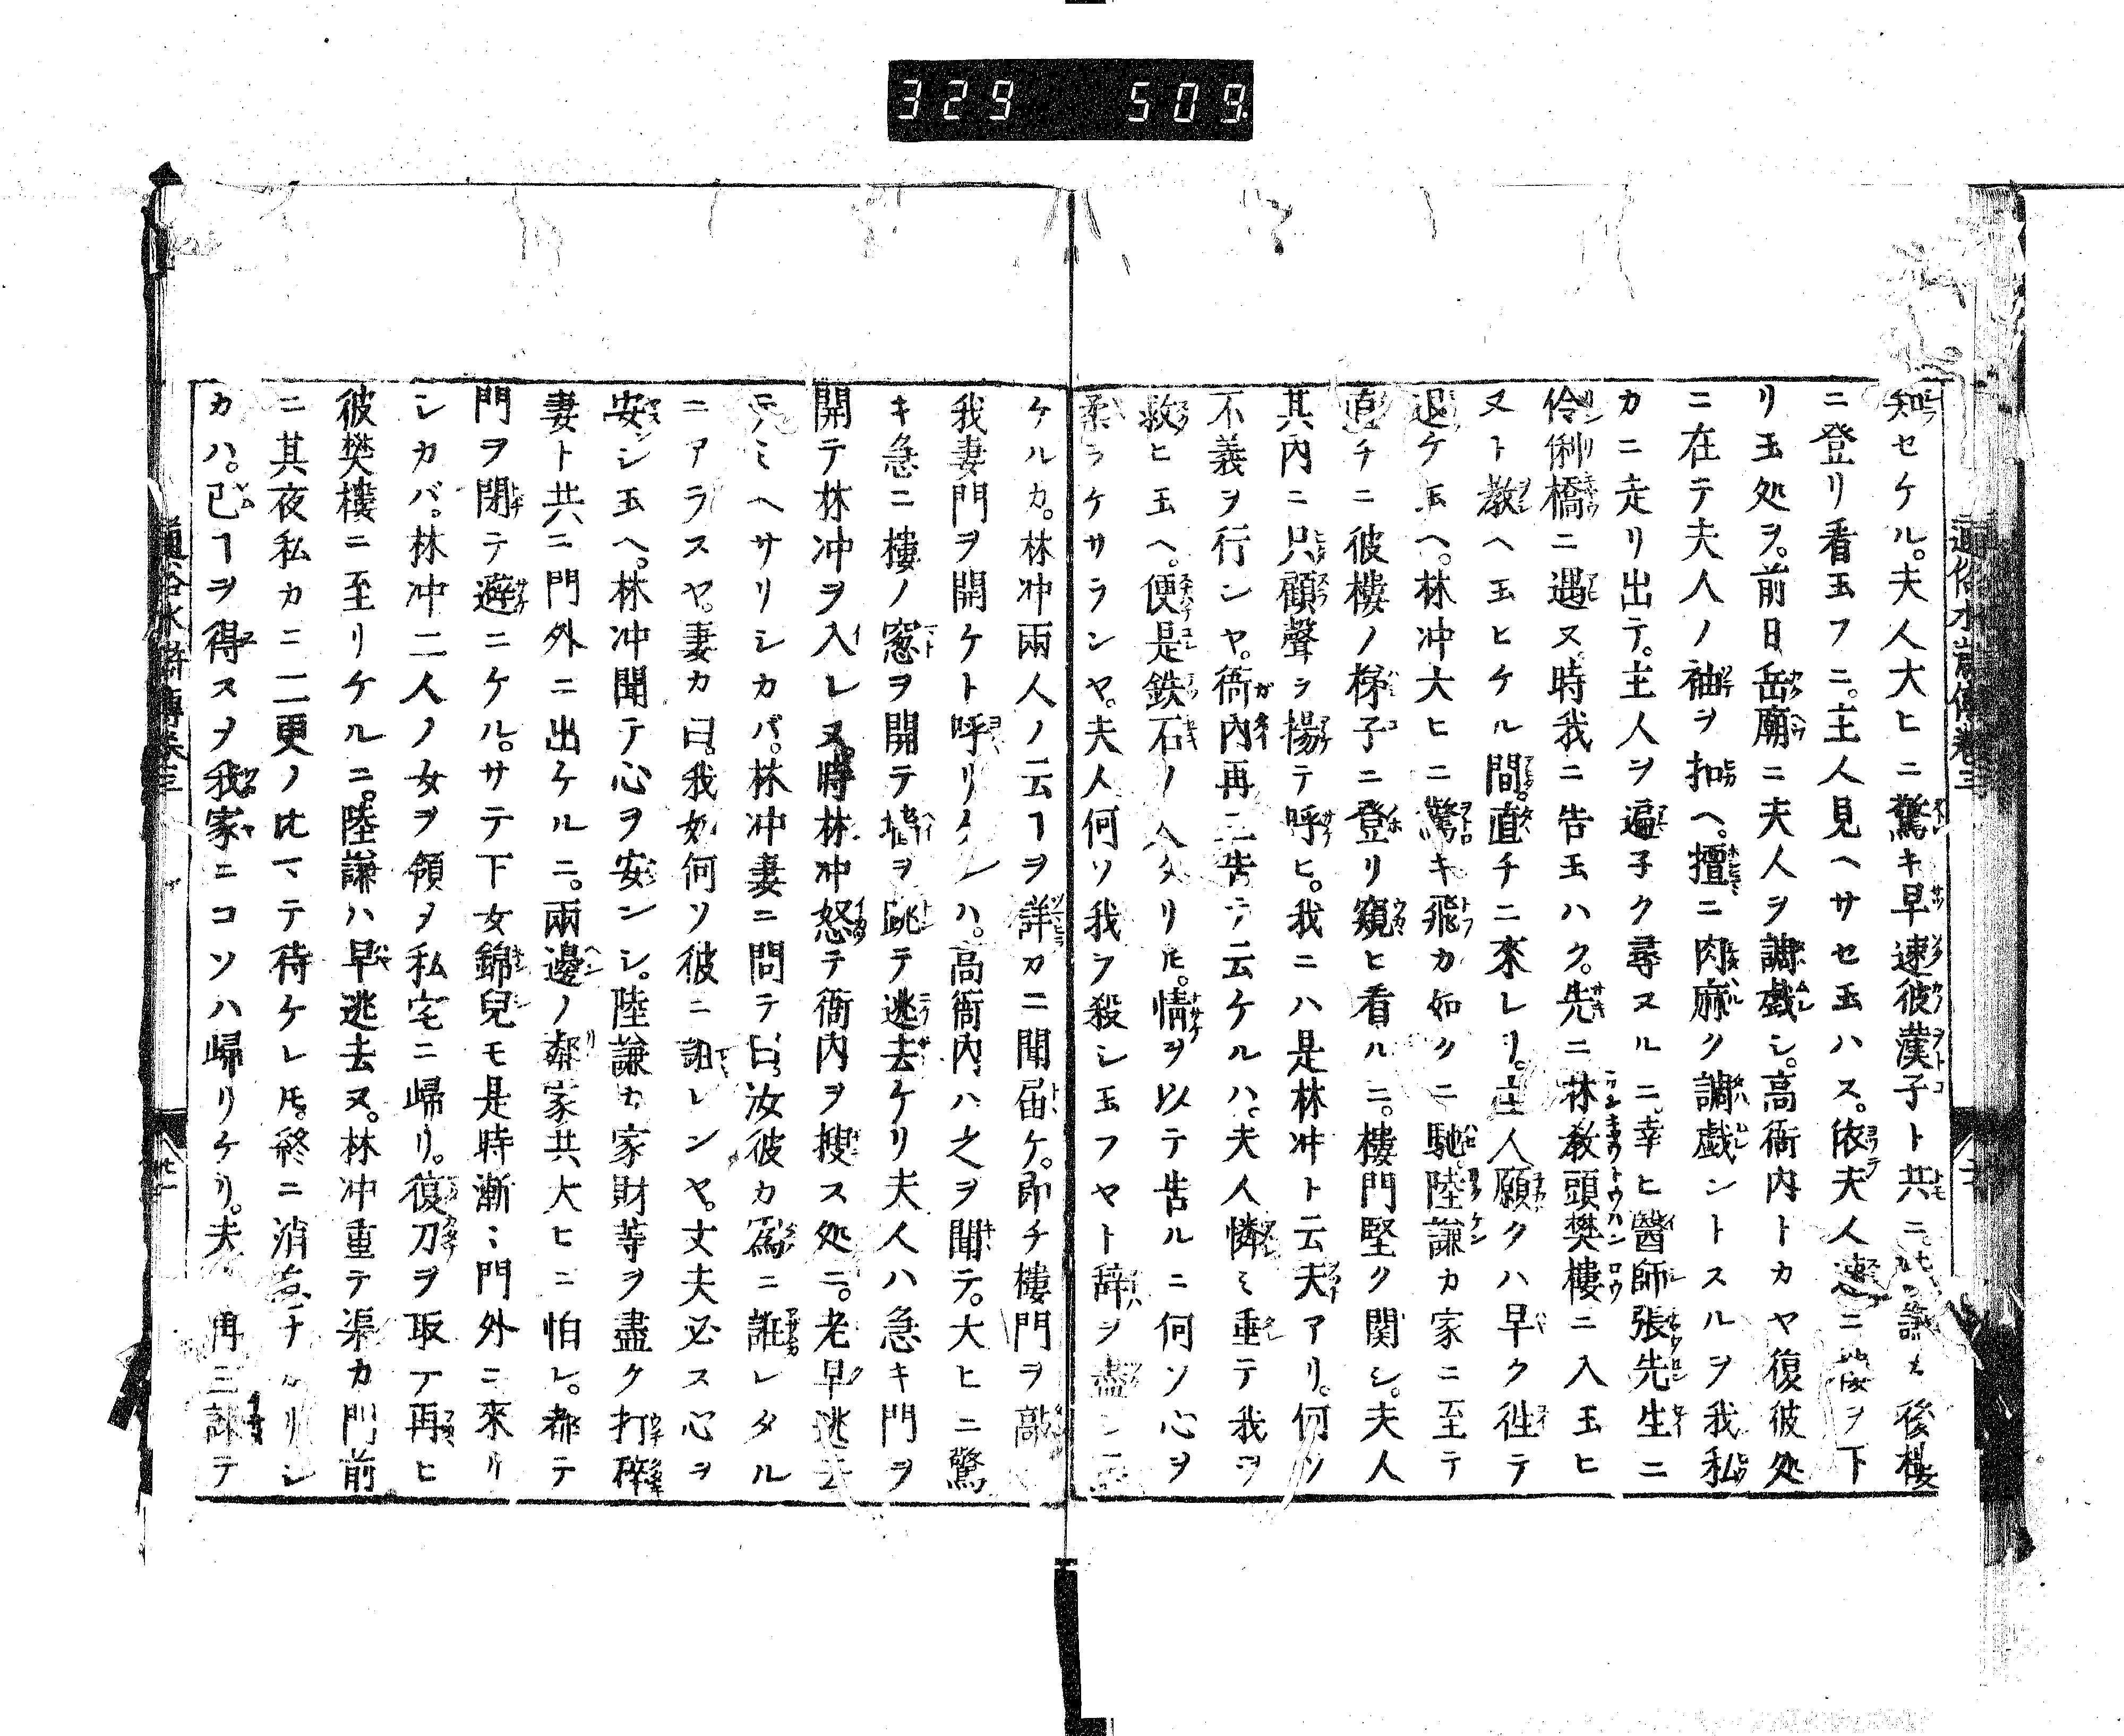 329 509
通俗水滸傳卷三
知セケル。夫人大ヒニ驚キ早速彼漢子ト共ニ後樓
ニ登リ看玉フニ。主人見ヘサセ玉ハス。依夫人ニ樓ヲ下
リ玉処ヲ。前日岳廟ニ夫人ヲ調戯シ。高衙内トカヤ復彼処
ニ在テ夫人ノ袖ヲ扣ヘ。擅ニ肉麻ク調戯ントスルヲ我私
カニ走リ出テ。主人ヲ遍子ク尋ヌルニ。幸ヒ醫師張先生ニ
伶俐橋ニ遇ヌ。時我ニ告玉ハク。先ニ林教頭樊樓ニ入玉ヒ
ヌト教ヘ玉ヒケル間。直チニ來レリ。主人願クハ早ク徃テ
退ケ玉ヘ。林冲大ヒニ驚キ飛カ如クニ馳陸謙カ家ニ至テ
直チニ彼樓ノ梯子ニ登リ窺ヒ看ルニ。樓門堅ク関シ。夫人
其内ニ只顧聲ヲ揚テ呼ヒ。我ニハ是林冲ト云夫アリ。何ソ
不義ヲ行ンヤ。衙内再ニ告テ云ケルハ。夫人憐ミ垂テ我ヲ
救ヒ玉ヘ。便是鉄石ノ人タリ𪜈。情ヲ以テ告ルニ何ソ心ヲ
柔ラケサランヤ。夫人何ソ我ヲ殺シ玉フヤト辞ヲ盡シ
ケルカ。林冲兩人ノ云ヿヲ詳カニ聞届ケ。即チ樓門ヲ敲
我妻門ヲ開ケト呼リケレハ。高衙内ハ之ヲ聞テ。大ヒニ驚
キ急ニ樓ノ窓ヲ開テ墻ヲ跳テ逃去ケリ夫人ハ急キ門ヲ
開テ林冲ヲ入レヌ。時林冲怒テ衙内ヲ搜ス処ニ。老早逃去
テミヘサリシカバ。林冲妻ニ問テ曰。汝彼カ爲ニ誰レタル
ニアラスヤ。妻カ曰。我如何ソ彼ニ詛レンヤ。丈夫必ス心ヲ
安シ玉ヘ。林冲聞テ心ヲ安ンシ。陸謙カ家財等ヲ盡ク打碎
妻ト共ニ門外ニ出ケルニ。兩邊ノ鄰家共大ヒニ怕レ。都テ
門ヲ閉テ避ニケル。サテ下女錦兒モ是時漸ミ門外ニ來リ
シカバ。林冲二人ノ女ヲ領メ私宅ニ歸リ。復刀ヲ取テ再ヒ
彼樊樓ニ至リケルニ。陸謙ハ早逃去ヌ。林冲重テ渠カ門前
ニ其夜私カニ二更ノ比マテ待ケレ𪜈。終ニ消息ナカリシ
カハ。已ヿヲ得スヲ我家ニコソハ歸リケリ。夫人再三諌テ
通俗水滸傳卷三
廿一